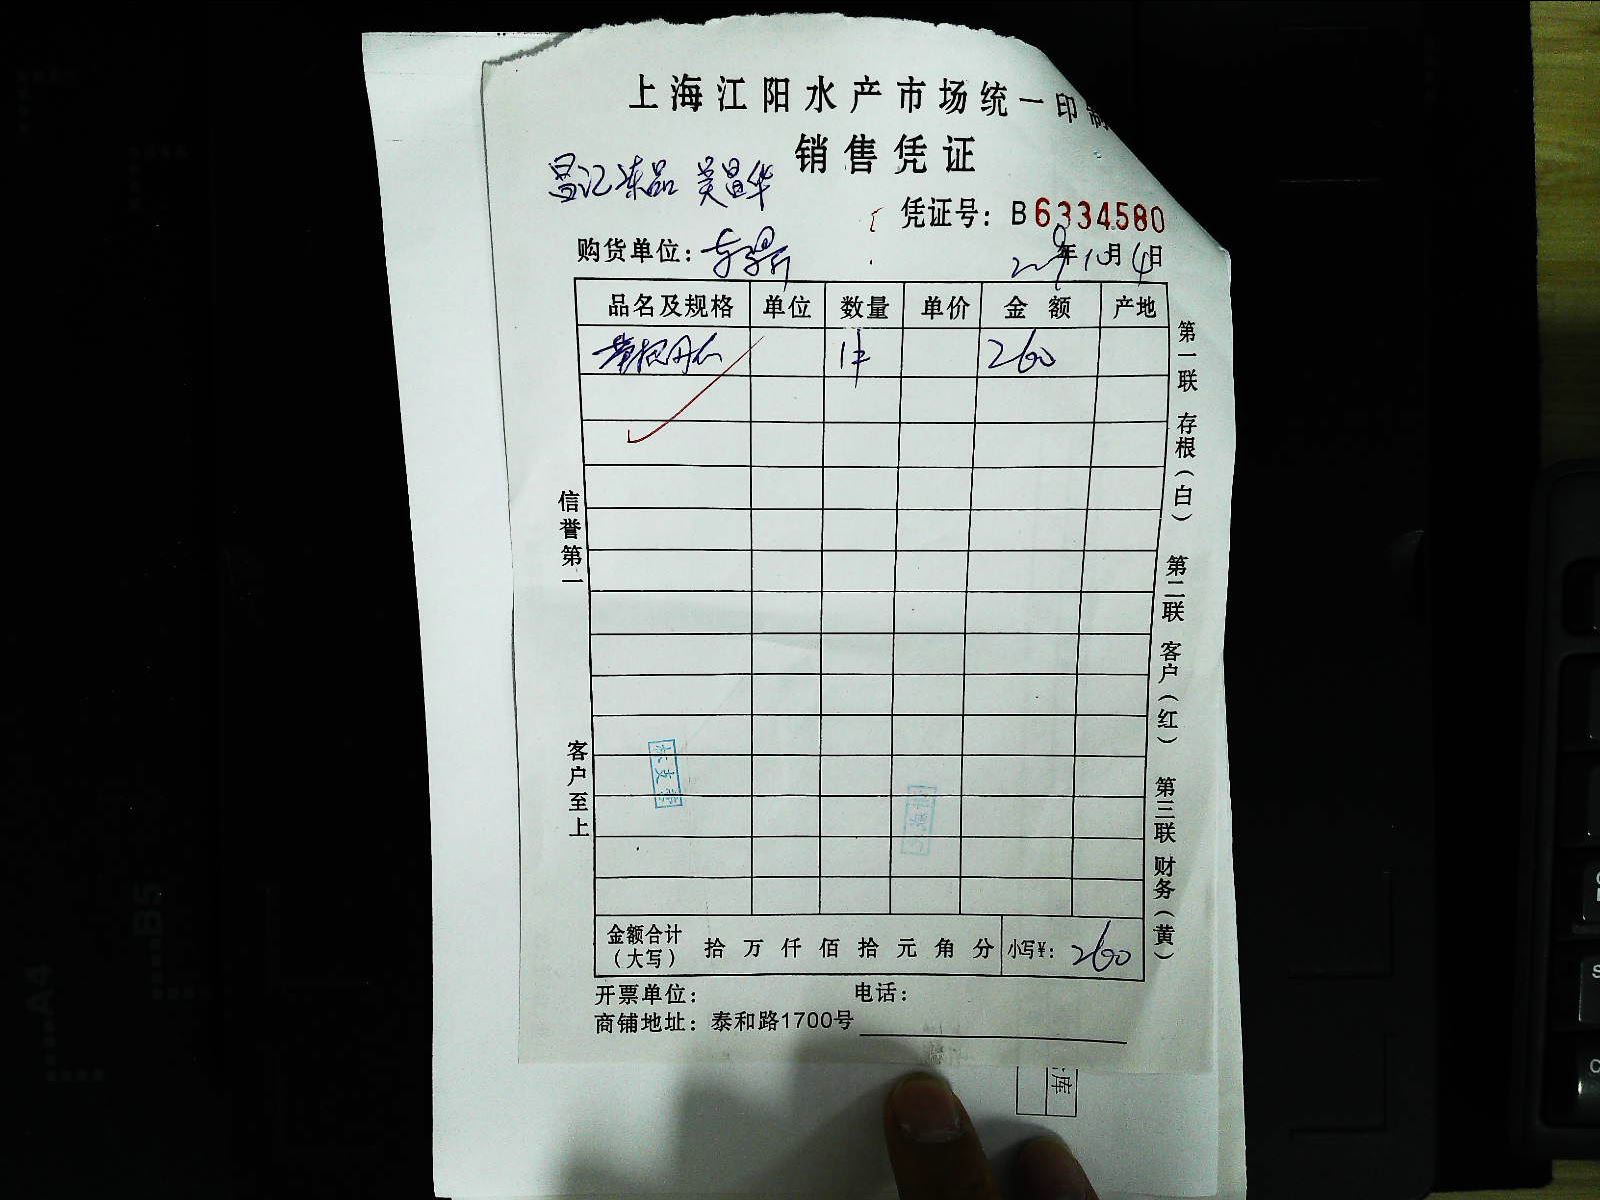 上海江阳水产市场统一印制
销售凭证
昌江冻品 吴昌华
凭证号：B6334580
购货单位：
年10月4日
品名及规格 单位 数量 单价 金额 产地
1件 260
信誉第一
客户至上
第一联 存根（白） 第二联 客户（红） 第三联 财务（黄）
金额合计（大写） 拾 万 仟 佰 拾 元 角 分 小写¥：260
开票单位： 电话：
商铺地址：泰和路1700号
库